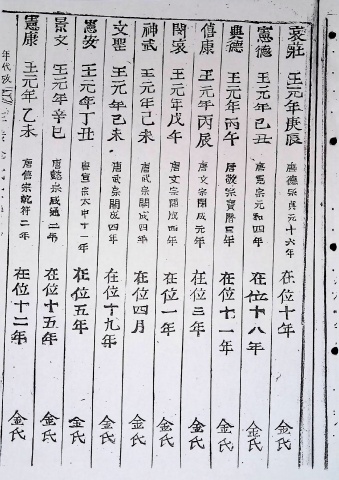 哀莊 王元年庚辰 唐德宗貞元十六年 在位十年 金氏
憲德 王元年己丑 唐憲宗元和四年 在位十八年 金氏
興德 王元年丙午 唐敬宗寶曆二年 在位十一年 金氏
僖康 王元年丙辰 唐文宗開成元年 在位三年 金氏
閔哀 王元年戊午 唐文宗開成四年 在位一年 金氏
神武 王元年己未 唐武宗開成四年 在位四月 金氏
文聖 王元年己未 唐武宗開成四年 在位十九年 金氏
憲安 王元年丁丑 唐宣宗大中十一年 在位五年 金氏
景文 王元年辛巳 唐懿宗咸通二年 在位十五年 金氏
憲康 王元年乙未 唐僖宗乾符二年 在位十二年 金氏
年代攷